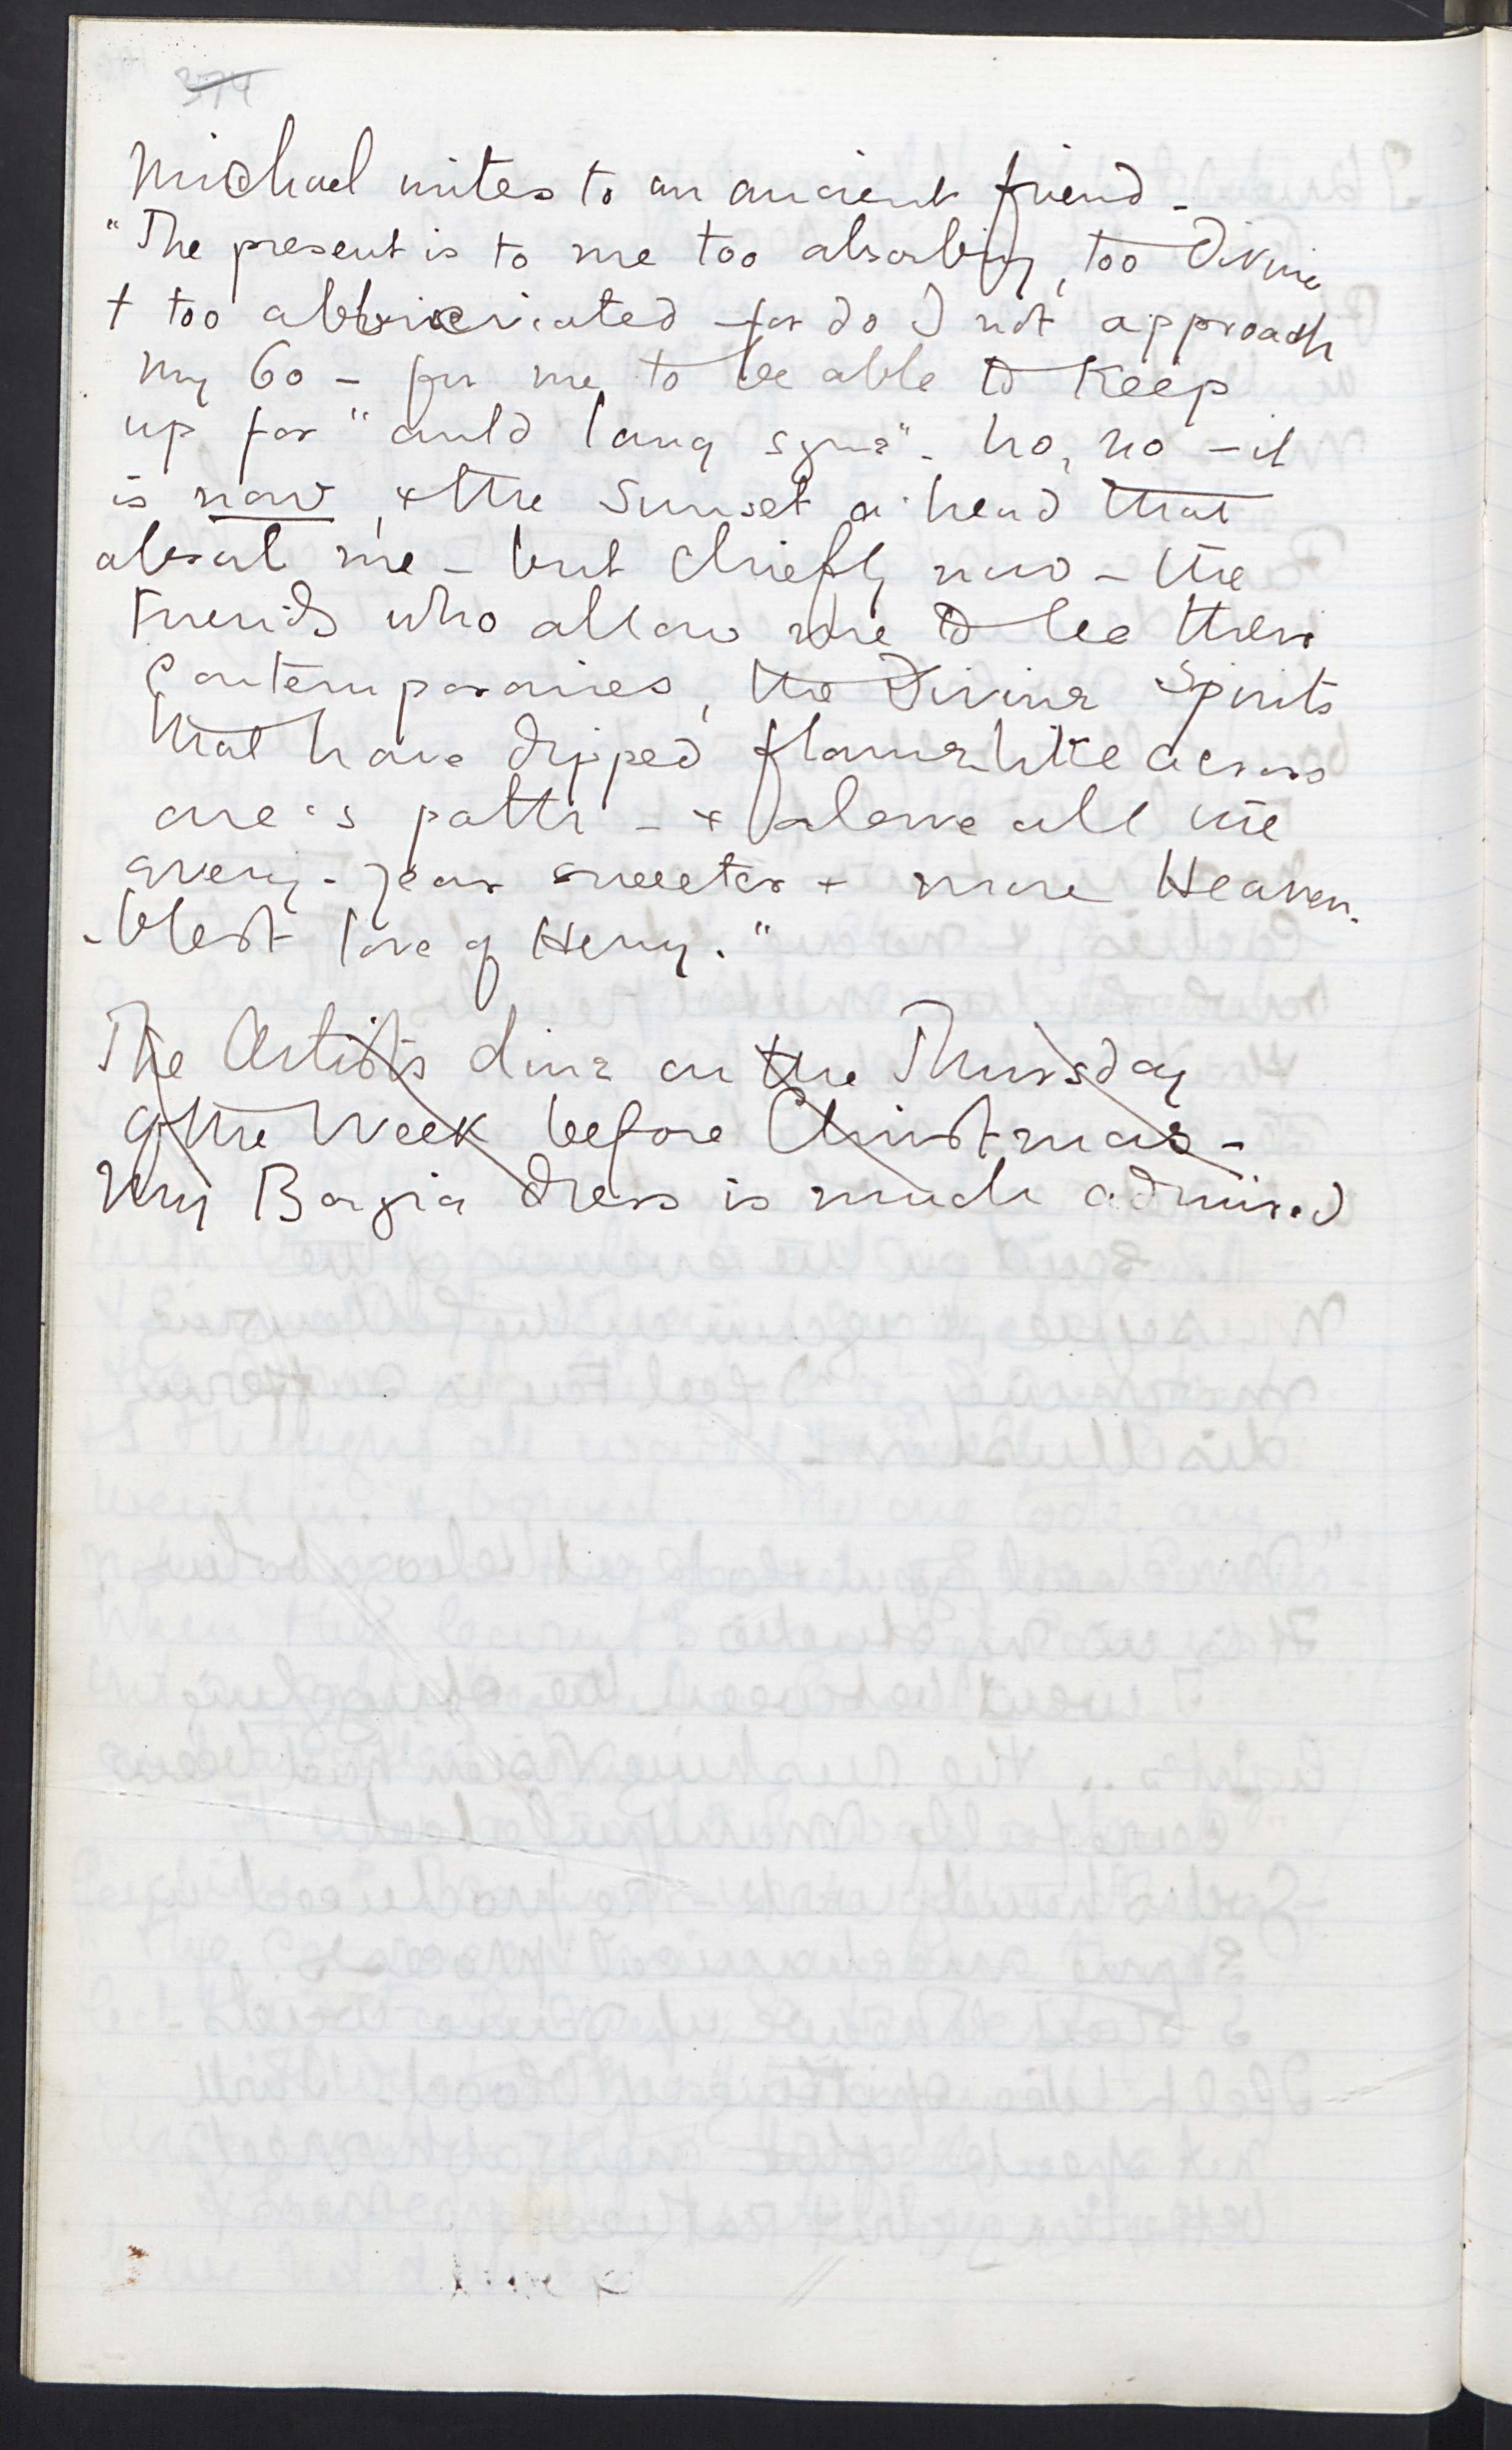 374
Michael writes to an ancient friend -
"The present is to me too absorbing, too Divine
+ too abbreviated - for do I not approach
my 60 - for me to be able to keep
up for "auld lang syne" - No, no - it
is now, + the Sunset a-head that
absorb me - but chiefly now - the
Friends who allow me to be their
Contemporaries, the Divine Spirits
that have dipped flame-like across
one's path - + above all the
every-year sweeter + more Heaven-
-blest love of Henry."
The Artists dine on the Thursday
of the Week before Christmas -
My Borgia dress is much admired